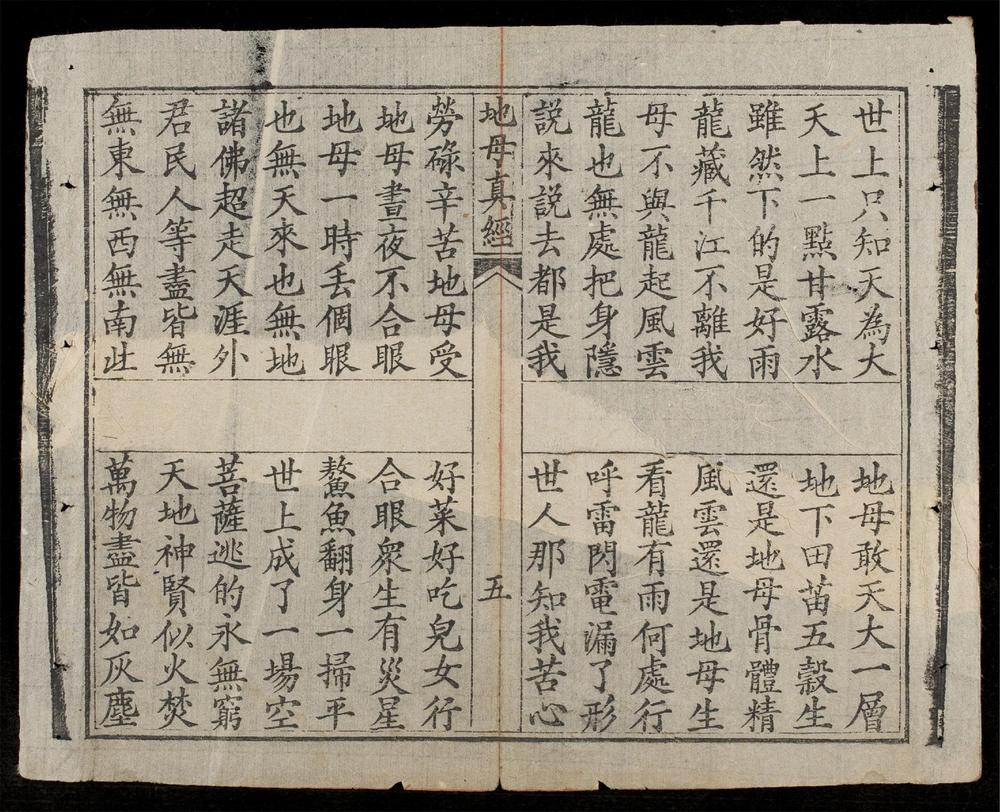 世上只知天為大
地母敢天大一層
天上一點甘露水
地下田苗五穀生
雖然下的是好雨
還是地母骨體精
龍藏千江不離我
風雲還是地母生
母不與龍起風雲
看龍有雨何處行
龍也無處把身隱
呼雷閃電漏了形
説來説去都是我
世人那知我苦心
地母真經
五
勞碌辛苦地母受
好菜好吃兒女行
地母晝夜不合眼
合眼衆生有災星
地母一時丢個眼
鰲魚翻身一掃平
也無天來也無地
世上成了一場空
諸佛超走天涯外
菩薩逃的永無窮
君民人等盡皆無
天地神賢似火焚
無東無西無南北
萬物盡皆如灰塵